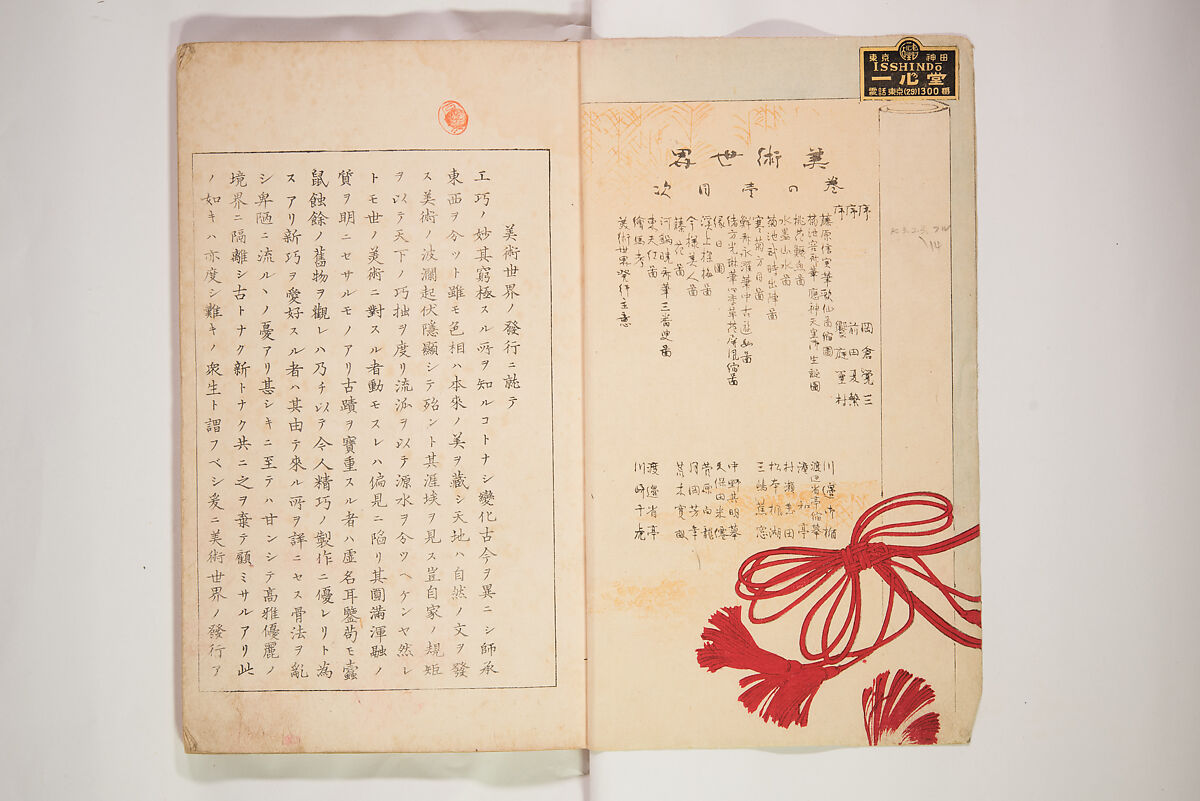 東京 神田
ISSHINDō
一心堂
電話東京(29)1300番
美術世界
巻の壱目次
序 岡倉覚三
序 前田夏繁
序 饗庭篁村
藤原信実筆歌仙図縮図 川邊御楯
菊池容斎筆應神天皇御生誕図 渡辺省亭縮摹
桃花鱖魚図
水墨山水図 村瀬玉田
菊池武時出陣図 松本楓湖
寒菊方目図 三嶋蕉窓
中野其明摹
縁日図 久保田米僊
渓上捜梅図 菅原白龍
今様美人図 月岡芳年
藤花図 荒木寛畝
河鍋暁斎筆三番叟図
東天紅図 渡邉省亭
繪馬考 川崎千虎
美術世界発行主意
美術世界ノ發行ニ就テ
工巧ノ妙其窮極スル所ヲ知ルコトナシ變化古今ヲ異ニシ師承
東西ヲ分ツト雖モ色相ハ本來ノ美ヲ藏シ天地ハ自然ノ文ヲ發
ス美術ノ波瀾起伏隱顯シテ殆ント其涯埃ヲ見ス豈自家ノ規矩
ヲ以テ天下ノ巧拙ヲ度リ流派ヲ以テ源水ヲ分ツヘケンヤ然レ
トモ世ノ美術ニ對スル者動モスレハ偏見ニ陷リ其圓滿渾融ノ
質ヲ明ニセサルモノアリ古蹟ヲ寶重スル者ハ虚名耳鑒苟モ蠹
鼠蝕餘ノ舊物ヲ觀レハ乃チ以テ今人精巧ノ製作ニ優レリト為
スアリ新巧ヲ愛好スル者ハ其由テ來ル所ヲ詳ニセス骨法ヲ亂
シ卑陋ニ流ルヽノ憂アリ甚シキニ至テハ甘ンシテ高雅優麗ノ
境界ニ隔離シ古トナク新トナク共ニ之ヲ棄テ顧ミサルアリ此
ノ如キハ亦度シ難キノ衆生ト謂フベシ爰ニ美術世界ノ發行ア